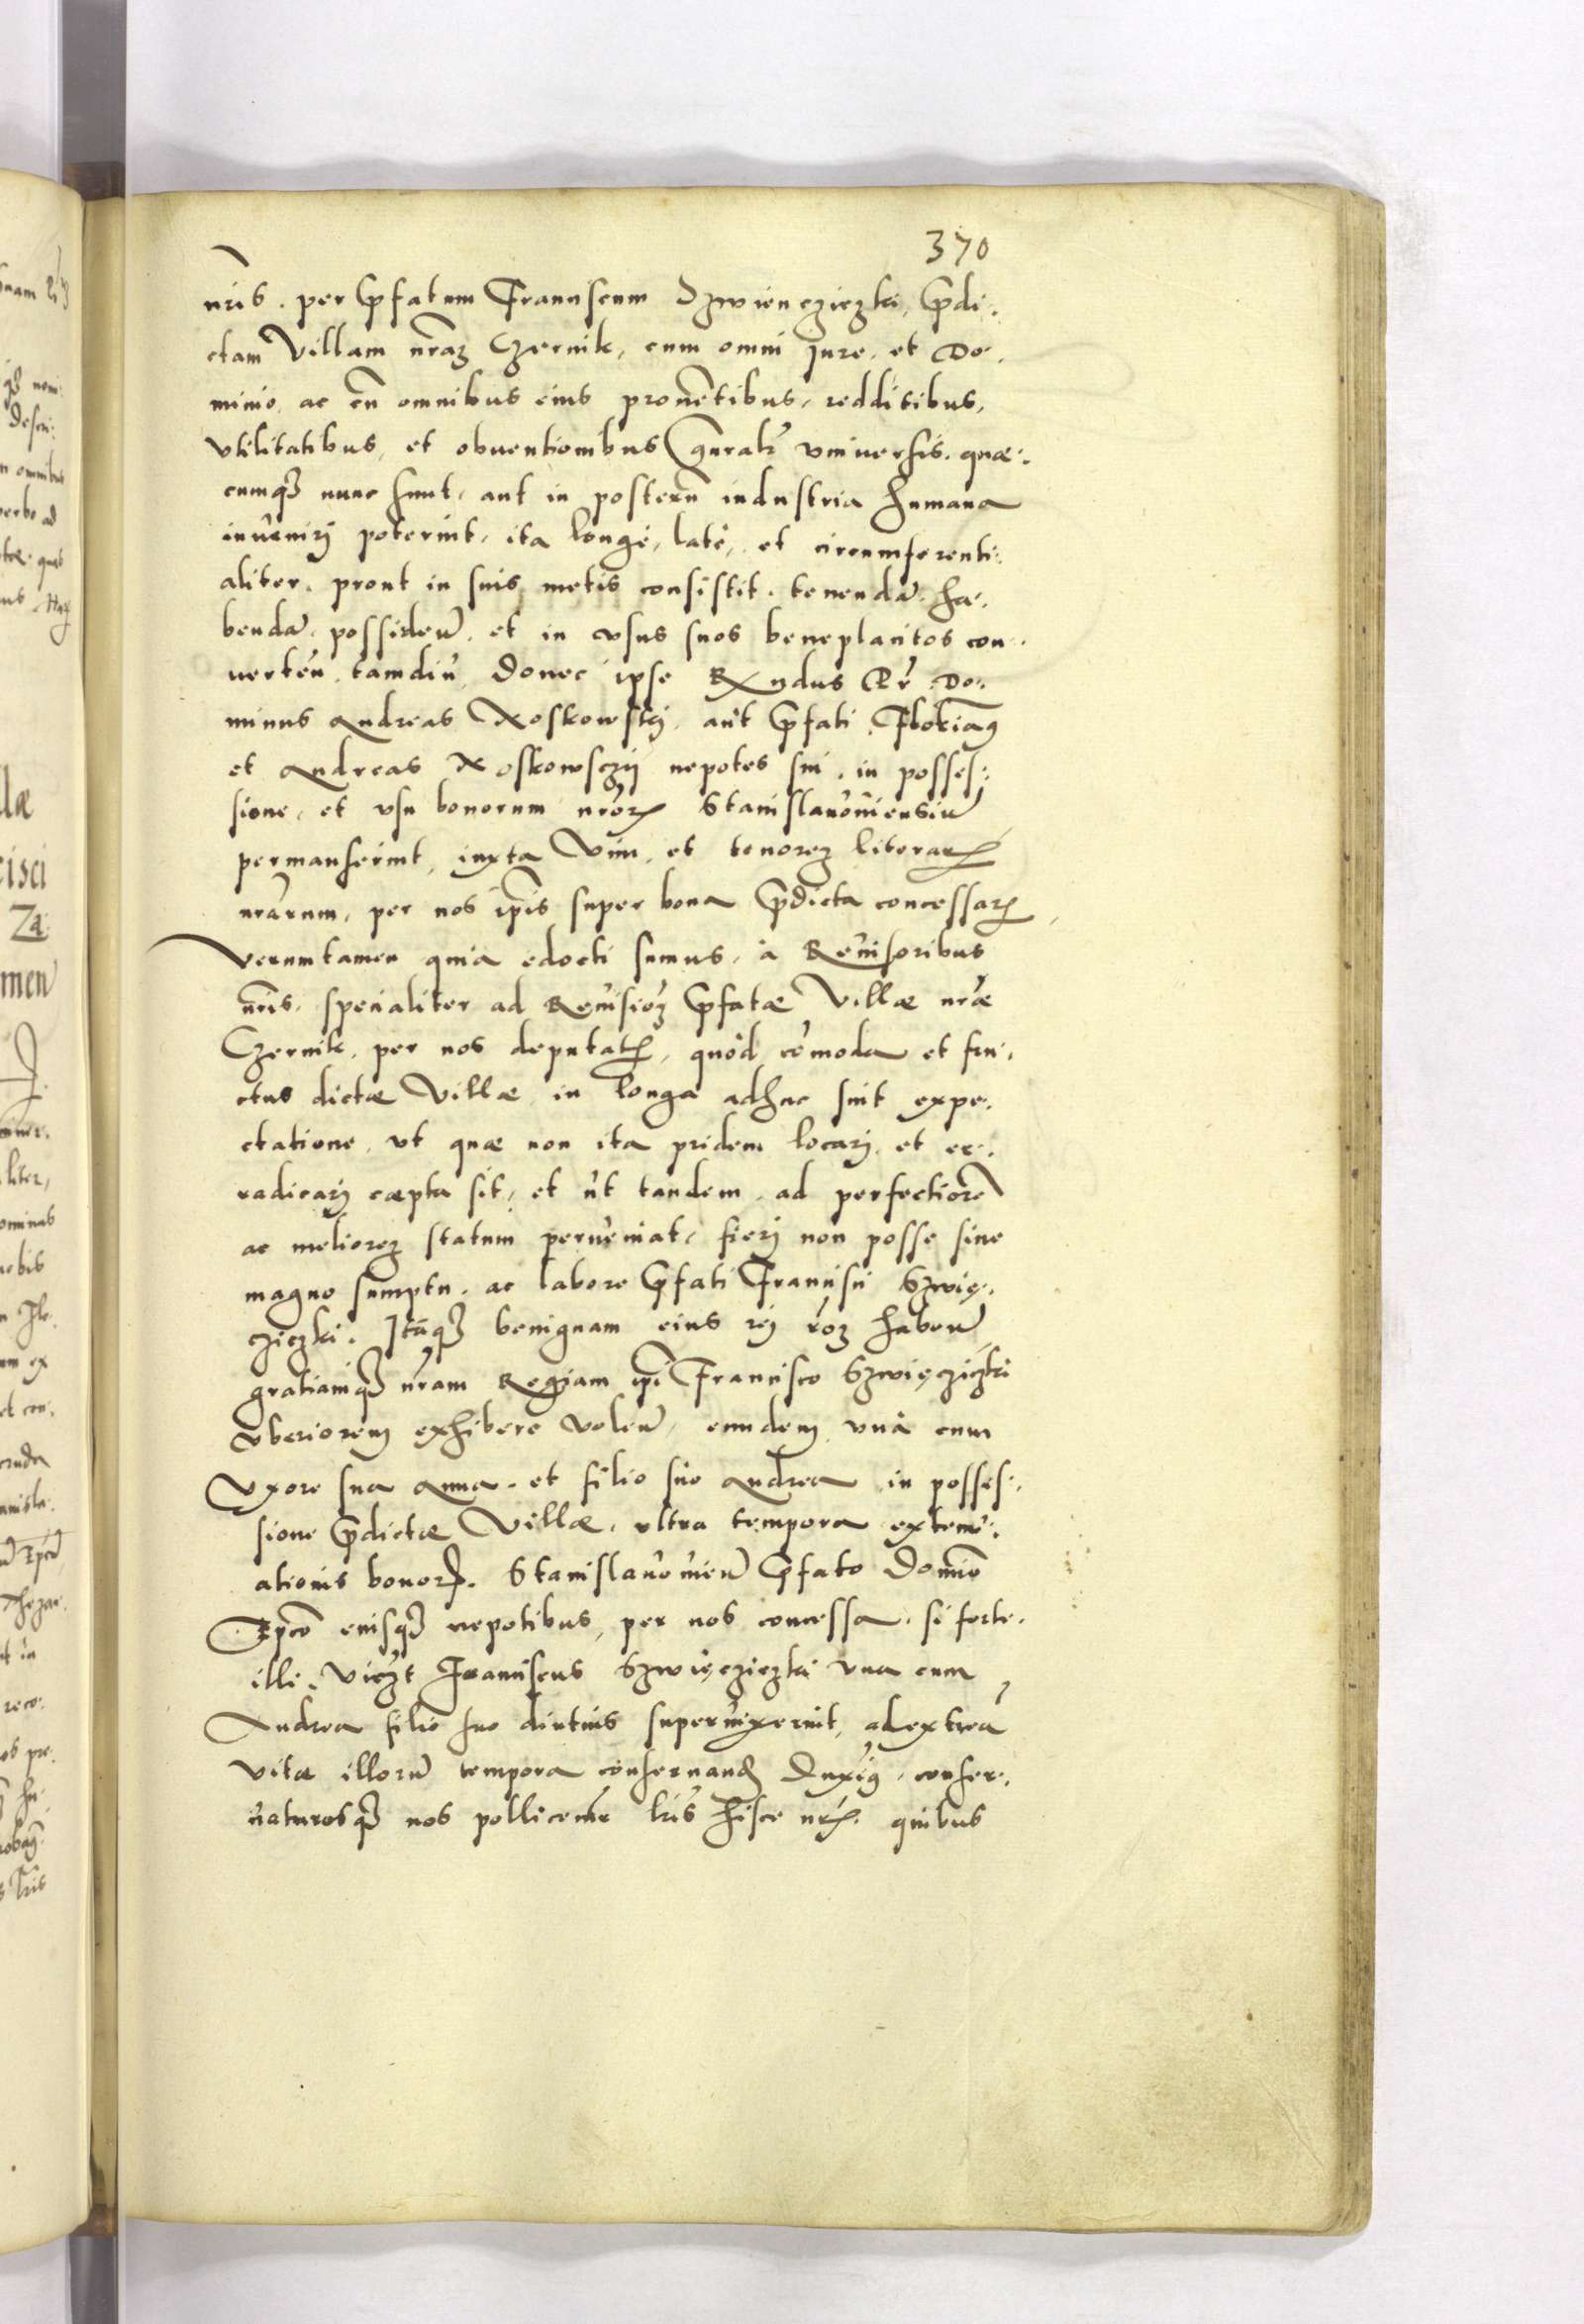 370
nris. per Pfatum Franciscum Szwiencziczki, Pdi-
ctam Villam nraz Czernik, cum omni Jure, et Do-
minio, ac cu omnibus eius prouetibus, redditibus,
vtilitatibus, et obuentionibus gnralr vniuersis. quae-
cumq nunc sunt, aut in posteru industria humana
inueniri poterint, ita longè, latè, et circumferenti-
aliter, prout in suis metis consistit. tenenda. ha-
benda. possiden. et in vsus suos beneplacitos con-
uerten. tamdiu, donec ipse Rxndus Pr Do-
minus Andreas Noskowski, aut Pfati, Florian9
et Andreas Noskowsczii nepotes sui, in posses-
sione, et vsu bonorum nror Stanislauouiensiu
permanserint, iuxta Vim, et tenorez literar
nrarum, per nos ipis super bona Pdicta concessar
Verumtamen quia edocti sumus, à Reuisoribus
nris, specialiter ad Reuisioz Pfatae Villae nrae
Czernik, per nos deputatr, quòd comoda et fru-
ctus dictae Villae in longa adhuc sint expe-
ctatione, vt quae non ita pridem locari, et ex-
radicari caepta sit, et ut tandem, ad perfectiore
ac meliorez statum perueniat, fieri non posse sine
magno sumptu, ac labore Pfati Francisci Szwię-
cziczki. Itaq benignam eius rei roz haben
gratiamq nram Regiam ipi Francisco Szwięcziczki
vberiorem exhibere volen, eundem vnà cum
Vxore sua Anna, et filio suo Andrea in posses-
sione Pdictae Villae, vltra tempora extenu-
ationis bonor. Stanislauouien Pfato Domio
Epco eiusq nepotibus, per nos concessa, si forte
illi, viczt Franciscus Szwięcziczki vna cum
Andrea filio suo diutius superuixerint, ad extrea
vitae illoru tempora conseruand Duxi9, conser-
uaturosq nos pollicemr lris hisce nris. quibus